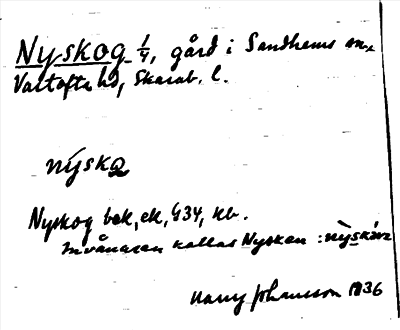 Nyskog 1/4, gård i Sandhems sn.
Vartofta hd, Skarab. l.
nýskɷ
Nyskog bek, ek, 434, kb.
Invånaren kallas Nysken :
Harry Johansson 1936